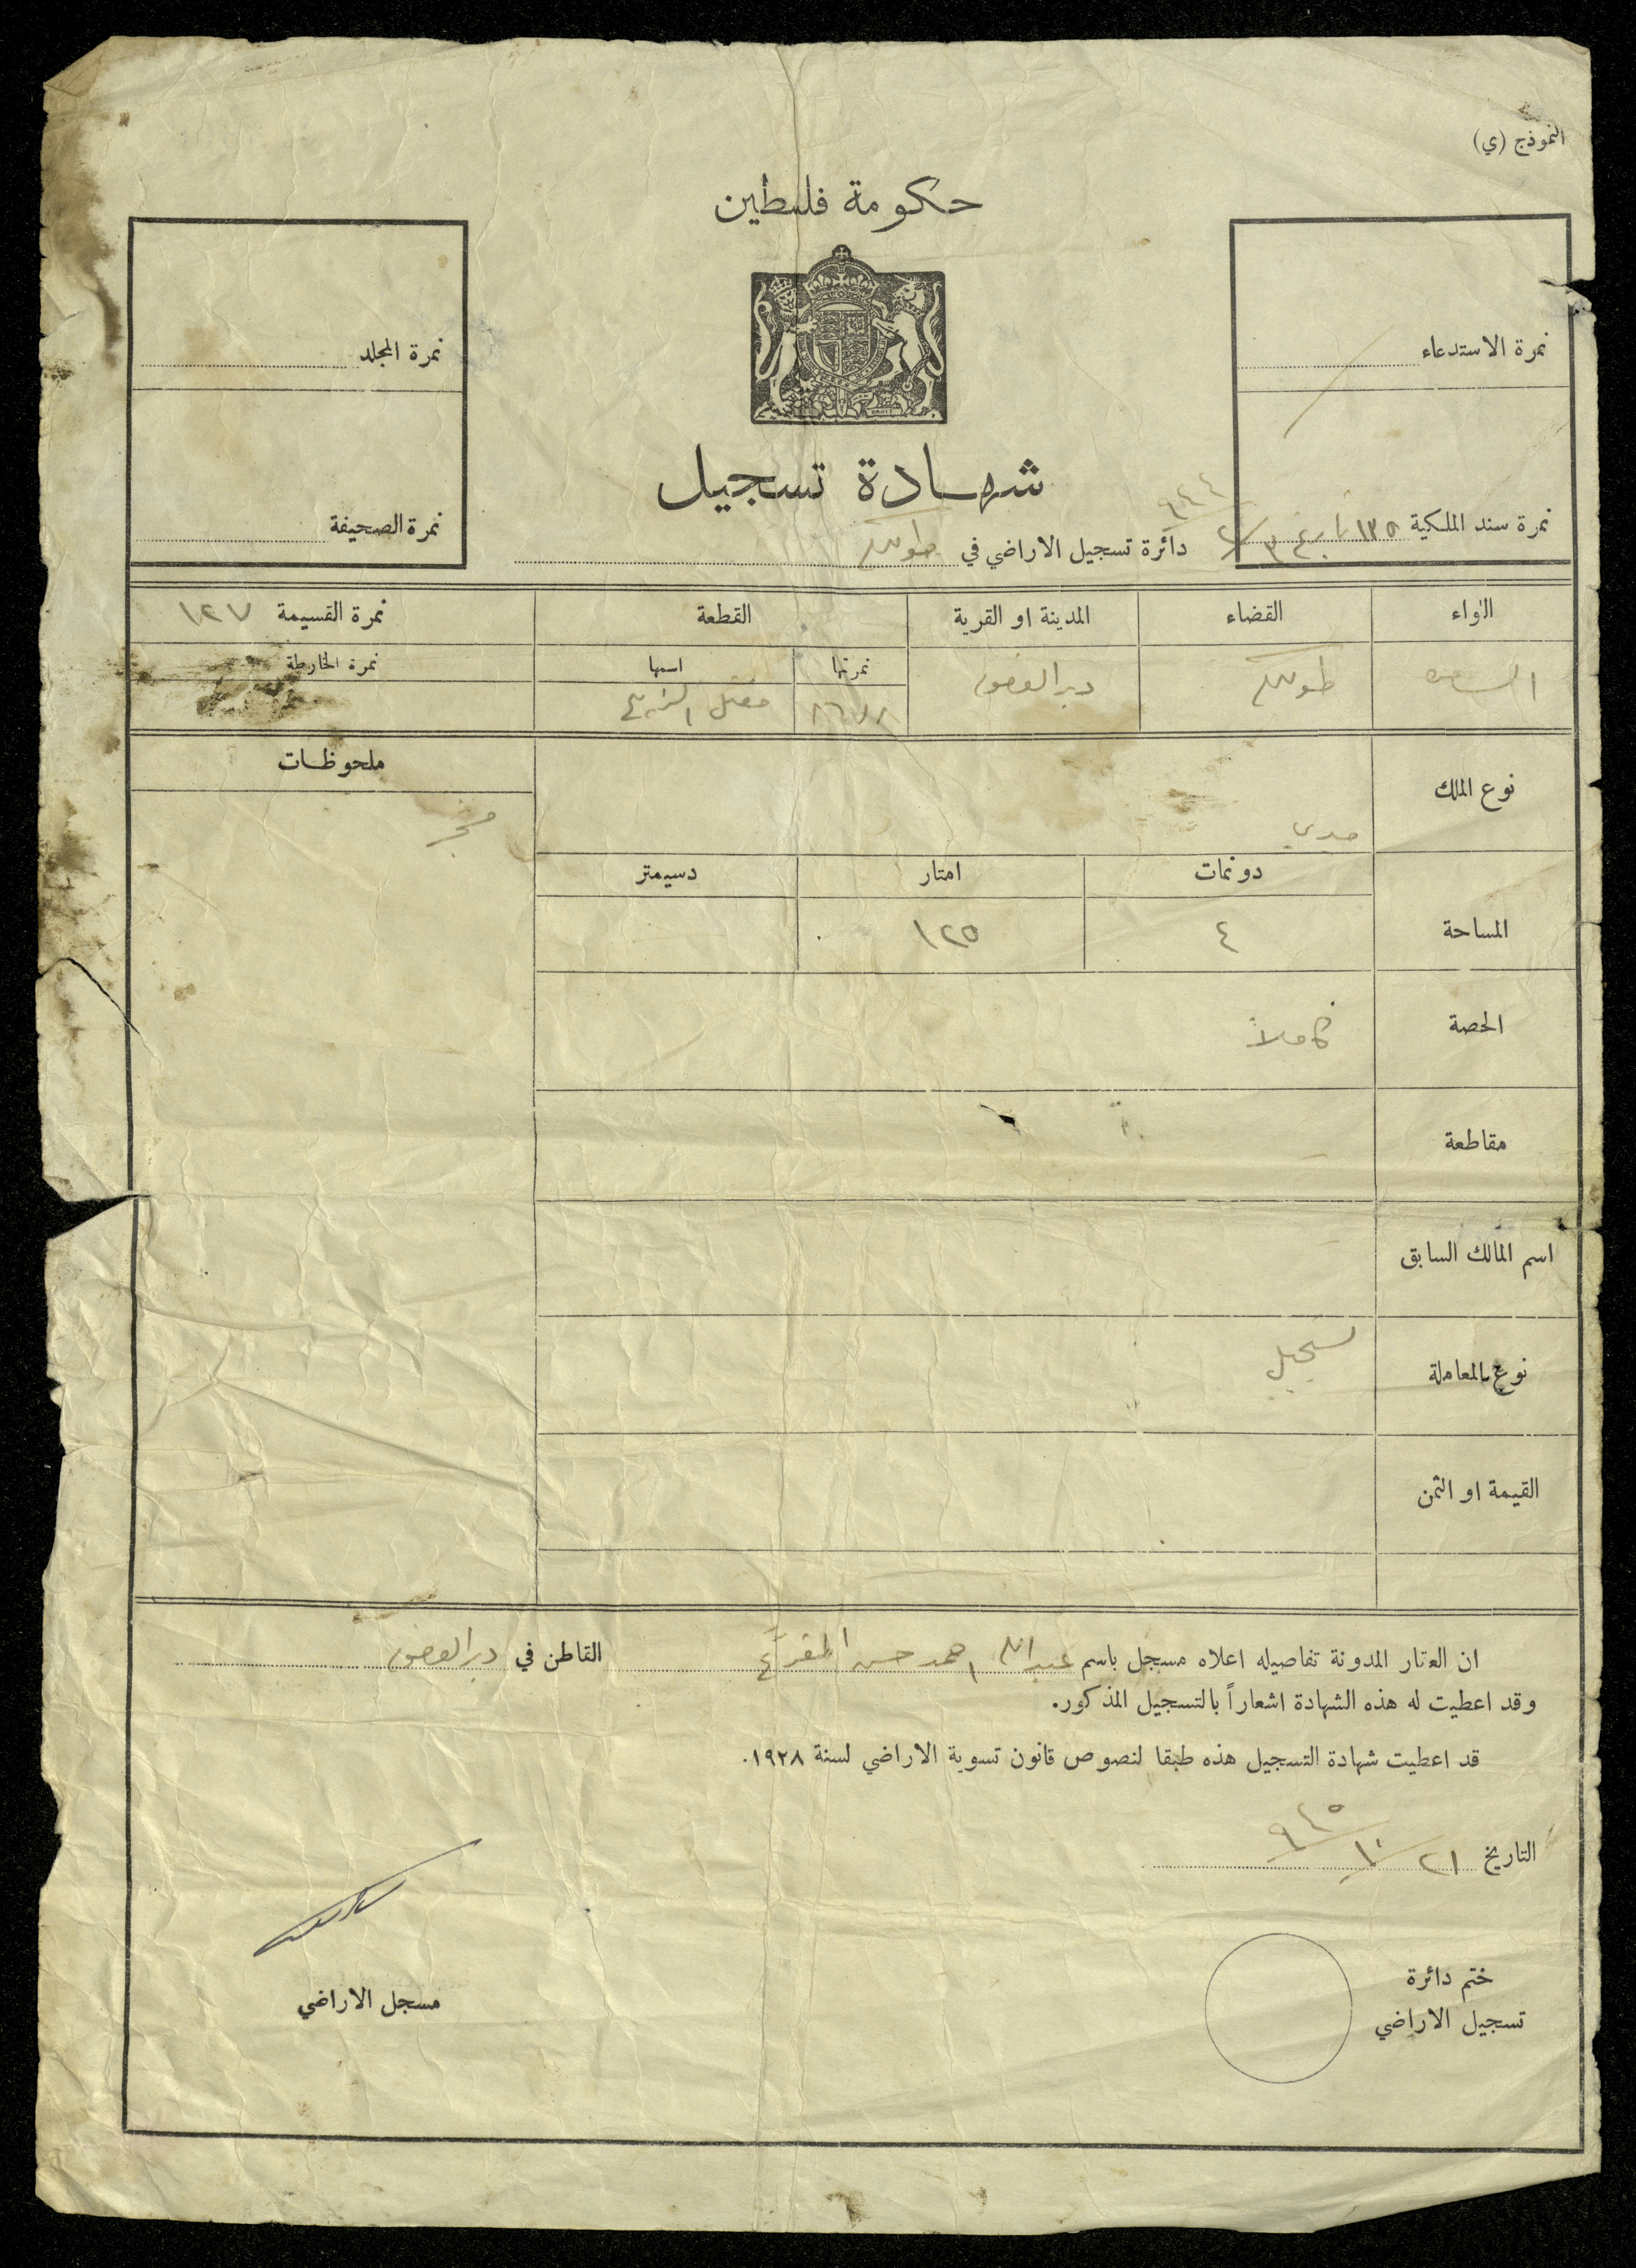 النموذج (ي)
حكومة فلسطين
نمرة الاستدعاء
نمرة المجلد
شهادة تسجيل
نمرة سند الملكية ١٣٥
دائرة تسجيل الاراضي في طولكرم
نمرة الصحيفة
اللواء القضاء المدينة او القرية القطعة نمرة القسيمة ١٢٧
نمرتها اسمها نمرة الخارطة
طولكرم دير الغصون
نوع الملك
ملحوظات
دونمات امتار دسيمتر
المساحة ٤ ١٢٥
الحصة كاملاً
مقاطعة
اسم المالك السابق
نوع المعاملة تسجيل
القيمة او الثمن
ان العقار المدونة تفاصيله اعلاه مسجل باسم عبد الله احمد حسن القاطن في دير الغصون
وقد اعطيت له هذه الشهادة اشعاراً بالتسجيل المذكور.
قد اعطيت شهادة التسجيل هذه طبقا لنصوص قانون تسوية الاراضي لسنة ١٩٢٨.
التاريخ ٢١/١٠/٩٤٥
ختم دائرة
تسجيل الاراضي
مسجل الاراضي